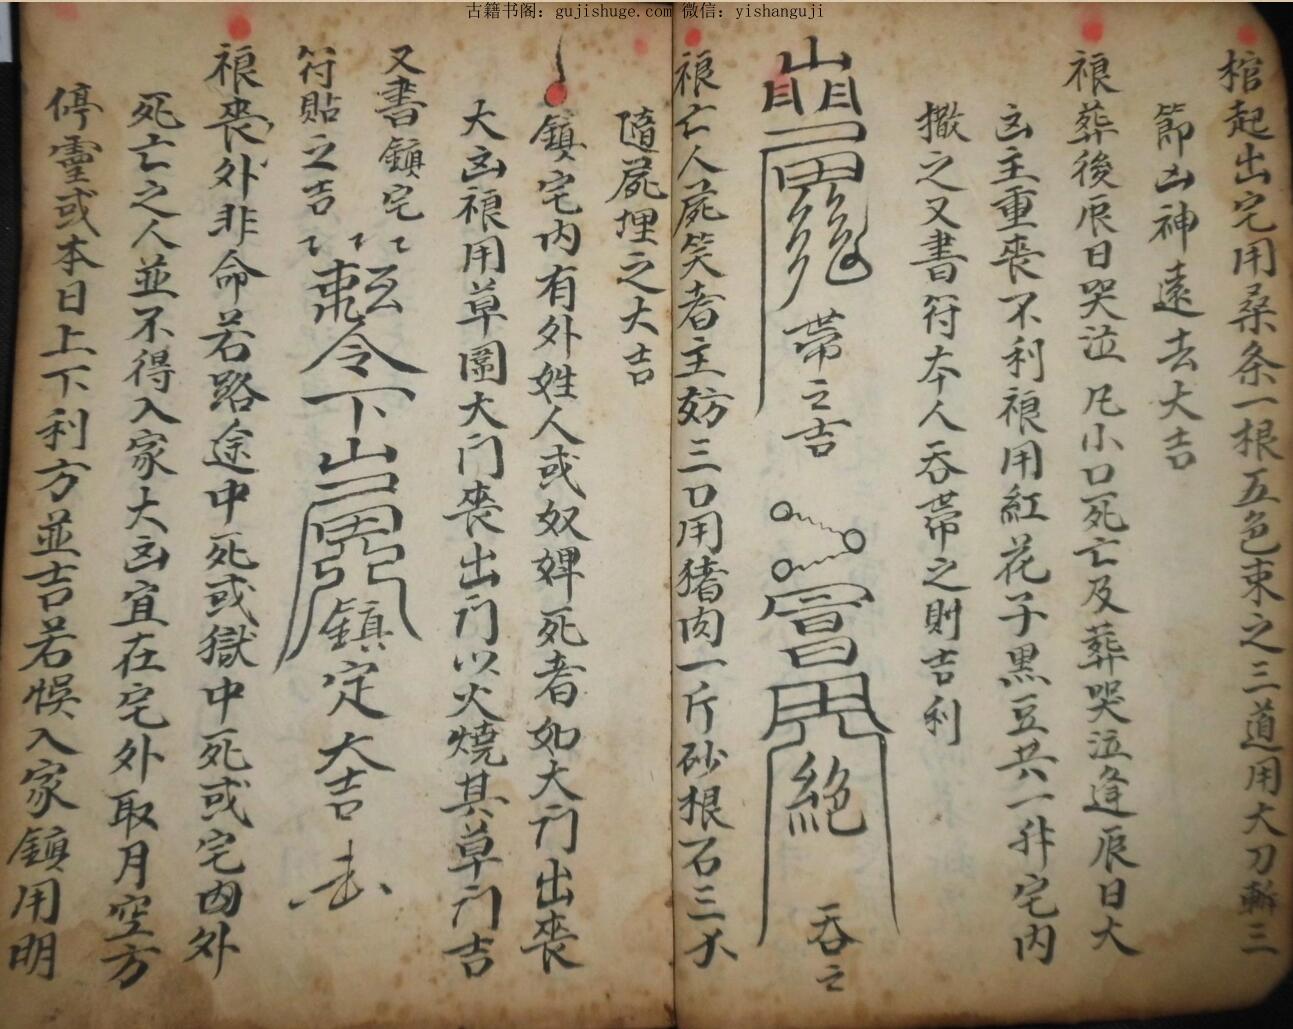 古籍书阁：gujishuge.com 微信：yishanguji
棺起出宅用桑条一根五色束之三道用大刀斬三
節凶神遠去大吉
裉葬後辰日哭泣凡小口死亡及葬哭泣逢辰日大
凶主重喪不利裉用紅花子黑豆共一升宅内
撒之又書符本人吞帶之則吉利
帶之吉
絕
吞之
裉亡人屍笑者主妨三口用猪肉一斤砂根石三个
隨屍埋之大吉
鎮宅内有外姓人或奴婢死者如大门出喪
大凶裉用草圖大门喪出门以火燒其草门吉
又書鎮宅
符貼之吉
令下
鎮定大吉
裉喪外非命若路途中死或獄中死或宅内外
死亡之人並不得入家大凶宜在宅外取月空方
停靈或本日上下利方並吉若悞入家鎮用明